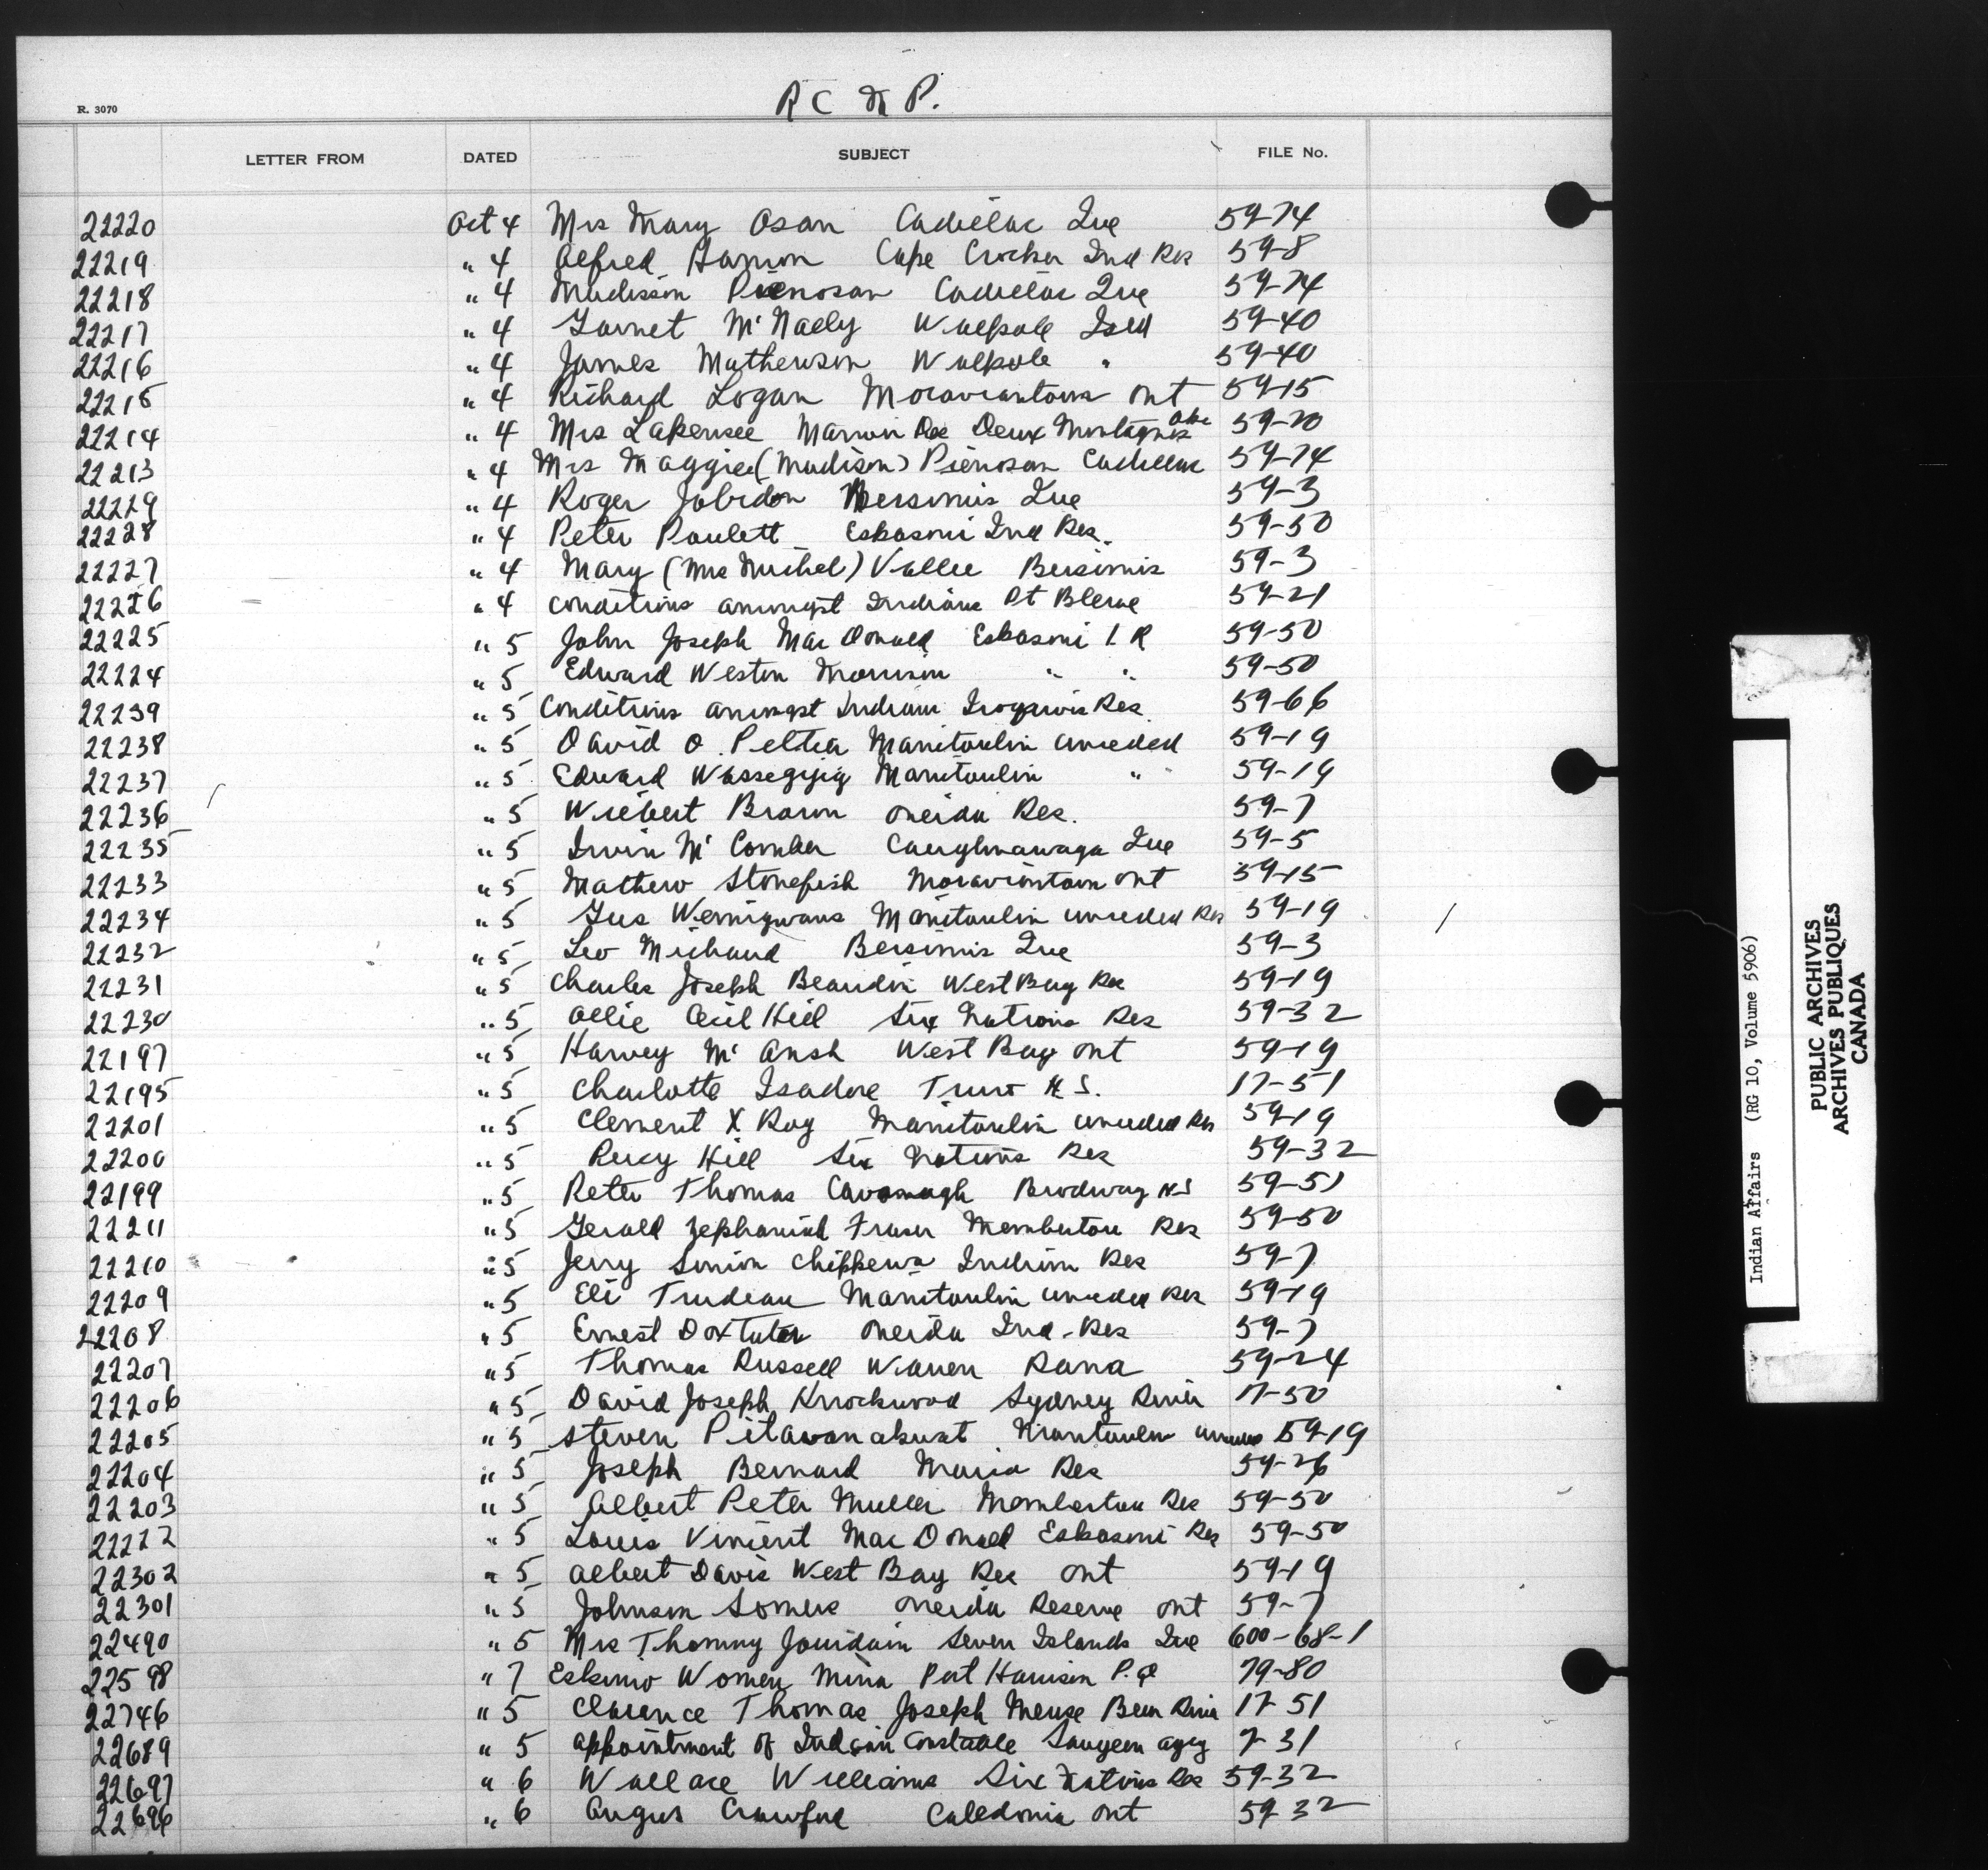 R C M P.
R. 3070
LETTER FROM DATED SUBJECT FILE No.
22220 Oct 4 Mrs Mary Osan Cadillac Que 59-74
22219 " 4 Alfred Cape Crocker Ind Res 59-8
22218 " 4 Madison Pienosan Cadillac Que 59-74
22217 " 4 Garnet McNaely Walpole Isld 59-40
22216 " 4 James Mathewson Walpole " 59-40
22215 " 4 Richard Logan Moraviantown Ont 59-15
22214 " 4 Mrs Deux Montagnes 59-70
22213 " 4 Mrs Maggie (Madison) Pienosan Cadillac 59-74
22229 " 4 Roger Jobidon Bersimis Que 59-3
22228 " 4 Peter Paulett Eskasoni Ind Res. 59-50
22227 " 4 Mary (Mrs Michel) Vallee Bersimis 59-3
22226 " 4 conditions amongst Indians Pt Bleue 59-21
22225 " 5 John Joseph MacDonald Eskasoni I R 59-50
22224 " 5 Edward Weston Morrison " " 59-50
22239 " 5 Conditions amongst Indians Iroquois Res. 59-66
22238 " 5 David O. Peltier Manitoulin unceded 59-19
22237 " 5 Edward Wassegijig Manitoulin " 59-19
22236 " 5 Wilbert Brown Oneida Res. 59-7
22235 " 5 Irvin McComber Caughnawaga Que 59-5
22233 " 5 Mathew Stonefish Moraviantown Ont 59-15
22234 " 5 Gus Wemigwans Manitoulin unceded Res 59-19
22232 " 5 Leo Michaud Bersimis Que 59-3
22231 " 5 Charles Joseph Beaudin West Bay Res 59-19
22230 " 5 Ollie Cecil Hill Six Nations Res 59-32
22197 " 5 Harvey McAnsh West Bay Ont 59-19
22195 " 5 Charlotte Isadore Truro N.S. 17-51
22201 " 5 Clement X Roy Manitoulin unceded Res 59-19
22200 " 5 Percy Hill Six Nations Res 59-32
22199 " 5 Peter Thomas Cavanagh NS 59-51
22211 " 5 Gerald Zephaniah Fraser Membertou Res 59-50
22210 " 5 Jerry Simon Chippewa Indian Res 59-7
22209 " 5 Eli Trudeau Manitoulin unceded Res 59-19
22208 " 5 Ernest Doxtater Oneida Ind. Res 59-7
22207 " 5 Thomas Russell Warren Rama 59-24
22206 " 5 David Joseph Knockwood Sydney River 17-50
22205 " 5 Steven Pitawanakwat unceded 59-19
22204 " 5 Joseph Bernard Maria Res 59-26
22203 " 5 Albert Peter Muller Membertou Res 59-50
22222 " 5 Louis Vincent MacDonald Eskasoni Res 59-50
22302 " 5 Albert Davis West Bay Res Ont 59-19
22301 " 5 Johnson Somers Oneida Reserve Ont 59-7
22490 " 5 Mrs Thommy Jourdain Seven Islands Que 600-68-1
22598 " 7 Eskimo Women Mina Port Harrison P.Q 79-80
22746 " 5 Clarence Thomas Joseph Meuse Bear River 17-51
22689 " 5 appointment of Indian Constable Saugeen agcy 7-31
22697 " 6 Wallace Williams Six Nations Res 59-32
22696 " 6 Angus Crawford Caledonia Ont 59-32
Indian Affairs (RG 10, Volume 5906)
PUBLIC ARCHIVES
ARCHIVES PUBLIQUES
CANADA